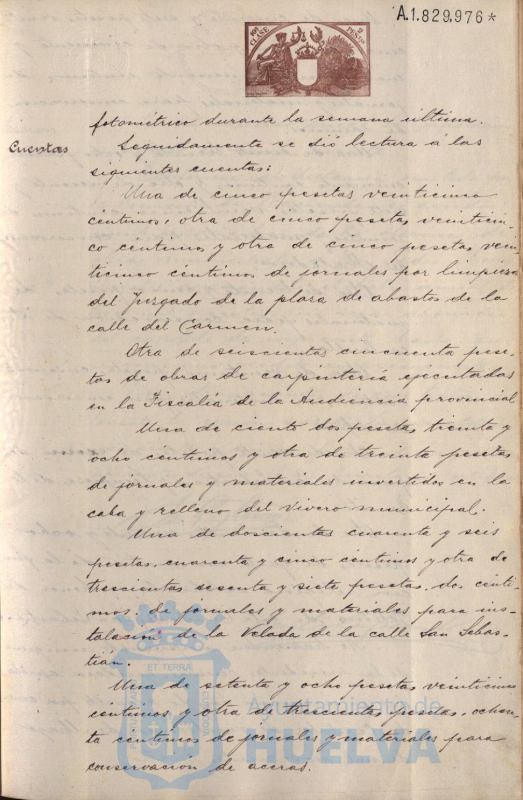 A.1.829,976*
10ª CLASE 2 PESETAS
fotométrico durante la semana última.
Cuentas
Seguidamente se dió lectura á las
siguientes cuentas:
Una de cinco pesetas veinticinco
céntimos, otra de cinco pesetas veinticin-
co céntimos y otra de cinco pesetas vein
ticinco céntimos de jornales por limpieza
del Juzgado de la plaza de abastos de la
calle del Carmen.
Otra de seiscientas cincuenta pese-
tas de obras de carpintería ejecutadas
en la Fiscalía de la Audiencia provincial
Una de ciento dos pesetas treinta y
ocho céntimos y otra de treinta pesetas
de jornales y materiales invertidos en la
caba y relleno del Vivero municipal.
Una de doscientas cuarenta y seis
pesetas, cuarenta y cinco céntimos y otra de
trescientas sesenta y siete pesetas, dos cénti
mos, de jornales y materiales para ins-
talación de la Velada de la calle San Sebas-
tián.
Una de setenta y ocho pesetas veinticinco
céntimos y otra de trescientas pesetas, ochen-
ta céntimos de jornales y materiales para
conservación de aceras.
ET TERRA
Ayuntamiento de
HUELVA